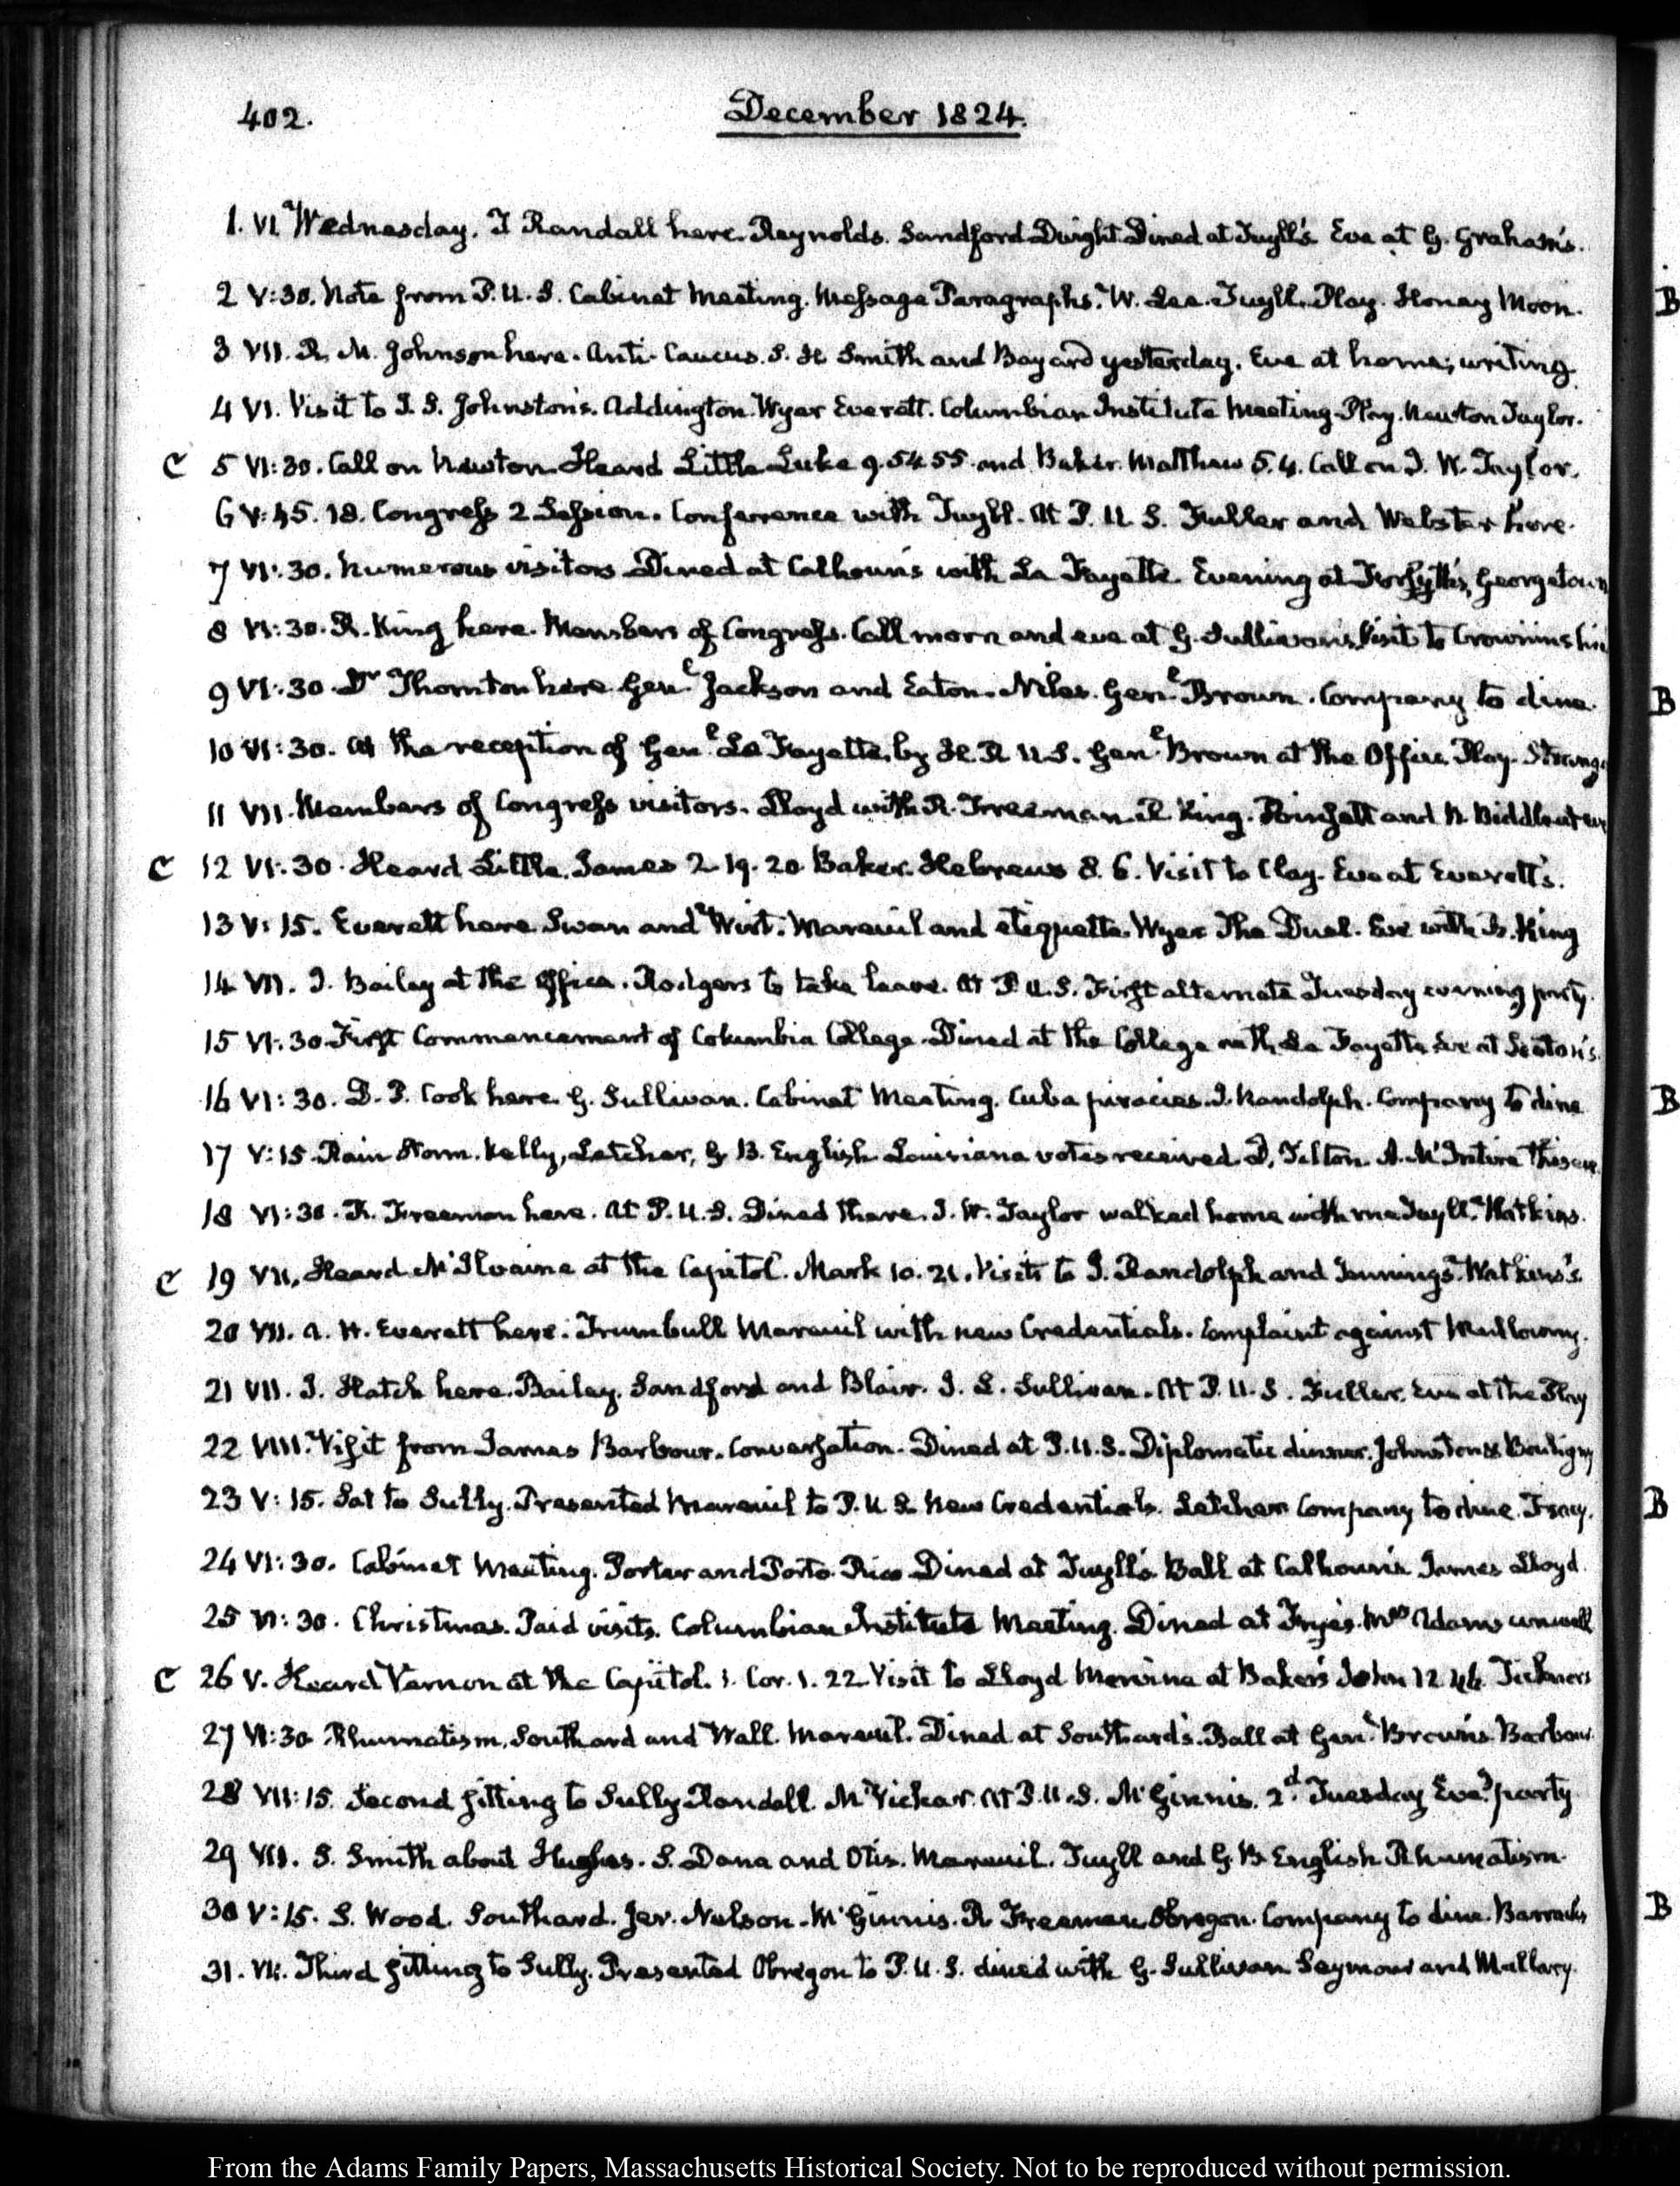 402.
December 1824.
1. VI. Wednesday. T Randall here. Reynolds. Sandford Dwight. Dined at Tuyll's Eve at G. Graham's.
B
2 V:30. Note from P.U.S. Cabinet Meeting. Message Paragraphs. W. Lee. Tuyll. Play. Honey Moon.
3 VII. R. M. Johnson here. Anti-Caucus. S. H Smith and Bayard yesterday. Eve at home; writing.
4 VI. Visit to J. S. Johnston's. Addington. Wyer Everett. Columbian Institute Meeting. Play. Newton Taylor.
C 5 VI:30. Call on Newton. Heard Little Luke 9. 54 55 and Baker. Matthew 5. 4. Call on J. W. Taylor.
6 V:45. 18. Congress 2 Session. Conference with Tuyll. At P. U. S. Fuller and Webster here.
7 VI:30. Numerous visitors Dined at Calhoun's with La Fayette. Evening at Forsyth's, Georgetown
8 VI:30. R. King here. Members of Congress. Call morn and eve at G. Sullivan's. Visit to Crowninshi
9 VI:30. Dr Thornton here. Genl Jackson and Eaton. Niles. Genl Brown. Company to dine.
B
10 VI:30. At the reception of Genl La Fayette, by H. R. U.S. Genl Brown at the Office. Play.
11 VII. Members of Congress visitors. Lloyd with R. Freeman. R King. Poinsett and N. Biddle at eve
C 12 VI:30. Heard Little. James 2 19. 20 Baker. Hebrews 8. 6. Visit to Clay. Eve at Everett's.
13 V:15. Everett here Swan and Wirt. Mareuil and etiquette. Wyer The Duel. Eve with R. King
14 VII. J. Bailey at the Office. Rodgers to take leave. At P. U.S. First alternate Tuesday evening party.
15 VI:30 First Commencement of Columbia College. Dined at the College with La Fayette Eve at Seaton's.
16 VI:30. D. P. Cook here. G. Sullivan. Cabinet Meeting. Cuba piracies. J. Randolph. Company to dine
B
17 V:15 Rain Storm. Kelly, Letcher, G B. English Louisiana votes received. A. McIntire this eve.
18 VI:30. R. Freeman here. At P.U.S. Dined there. J. W. Taylor walked home with me Tuyll. Watkins.
C 19 VII. Heard McIlvaine at the Capitol. Mark 10. 21. Visits to J. Randolph and Jennings. Watkins's.
20 VII. A. H. Everett here. Trumbull Mareuil with new Credentials. Complaint against Mullowny.
21 VII. J. Hatch here. Bailey. Sandford and Blair. J. L. Sullivan. At P.U.S. Fuller. Eve at the Play
22 VIII. Visit from James Barbour. Conversation. Dined at P.U.S. Diplomatic dinner. Johnston & Bouligny
23 V:15. Sat to Sully. Presented Mareuil to P. U S. New Credentials. Letcher Company to dine.
B
24 VI:30. Cabinet Meeting. Porter and Porto Rico Dined at Tuyll's. Ball at Calhoun's James Lloyd.
25 VI:30. Christmas. Paid visits. Columbian Institute Meeting. Dined at Frye's. Mrs Adams unwell
C 26 V. Heard Vernon at the Capitol. 1. Cor. 1. 22 Visit to Lloyd at Baker's John 12 46. Ticknors
27 VI:30 Rhumatism. Southard and Wall. Mareuil. Dined at Southard's. Ball at Genl Brown's Barbour
28 VII:15. Second sitting to Sully Randall. McVickar. At P.U.S. McGinnis. 2d. Tuesday Eveg party
29 VII. S. Smith about Hughes. S. Dana and Otis. Mareuil. Tuyll and G. B English Rhumatism.
30 V:15. S. Wood. Southard. Jer. Nelson. McGinnis. R Freeman Obregon. Company to dine. Barracks
B
31. VII. Third sitting to Sully. Presented Obregon to P.U.S. dined with G. Sullivan Seymour and Mallary.
From the Adams Family Papers, Massachusetts Historical Society. Not to be reproduced without permission.